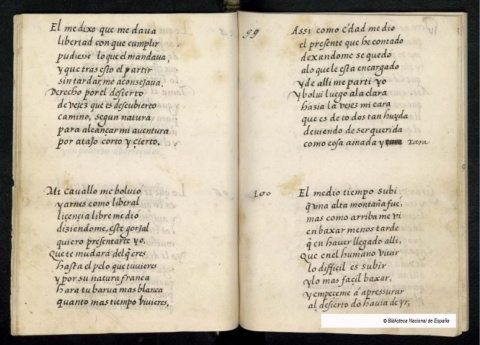 El medixo que me daua
libertad con que cumplir
pudiese lo que el mandaua,
y que tras esto el partir
sin tardar, me aconsejaua,
Derecho por el desierto
de vejez que es descubierto
camino, segun natura
para alcançar mi auentura
por atajo corto y cierto.
Mi cauallo me boluio
y arnes como liberal
licençia libre me dio
diziendome, este
quiero presentarte yo,
Que te mudara del q̃ eres
hasta el pelo que tuuieres
y por su natura franca
hara tu barua mas blanca
quanto mas tiempo viuieres,
99
Assi como edad me dio
el presente que he contado
dexandome se quedo
a lo que le esta encargado
y de alli me parti yo
Y bolui luego a la clara
hazia la vejes mi cara
que es de todos tan huyda
deuiendo de ser querida
como cosa amada y rara
100
El medio tiempo subi
q̃ una alta montaña fue,
mas como arriba me vi
en baxar menos tarde
q̃ en hauer llegado alli,
Que en el humano viuir
lo difficil es subir
y lo mas façil baxar,
y empeçeme à apressurar
al desierto do hauia de yr,
© Biblioteca Nacional de España